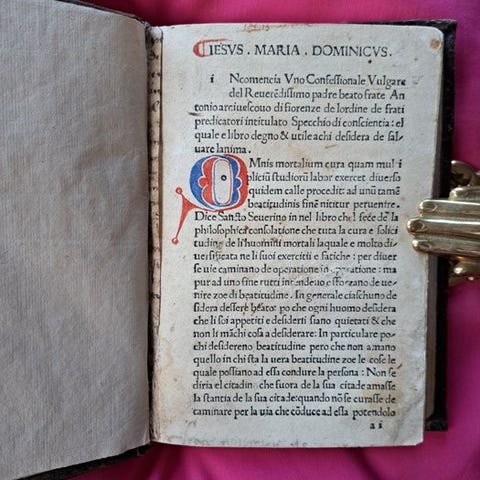 IESVS . MARIA . DOMINICVS .
i Ncomencia Vno Confessionale Vulgare
del Reuerēdissimo padre beato frate An
tonio arciuescouo di fiorenze de lordine de frati
predicatori intitulato Specchio di conscientia : el
quale e libro degno & utile a chi desidera de sal
uare lanima.
OMnis mortalium cura quam multi
pliciū studiorū labor exercet diuerso
quidem calle procedit: ad unū tamē
beatitudinis finē nititur peruenire.
Dice Sansto Seuerino in nel libro che
philosophica consolatione che tuta la cura e solici
tudine de li huomini mortali laquale e molto di-
uersificata ne li suoi exercitii e fatiche : per diuer
se uie caminano de operatione in operatione : ma
pur ad uno fine tutti intendeno e sforzano de ue-
nire zoe di beatitudine . In generale ciaschuno de
sidera dessere beato: po che ogni huomo desidera
che li soi appetiti e desiderii siano quietati & che
non li māchi cosa a desiderare: In particulare po-
chi desidereno beatitudine pero che non amano
quello in chi sta la uera beatitudine zoe le cose le
quale possiano ad essa condure la persona : Non se
diria el citadin che fuora de la sua citade amasse
la stantia de la sua citade:quando nō se curasse de
caminare per la uia che cōduce ad essa potendolo
a i